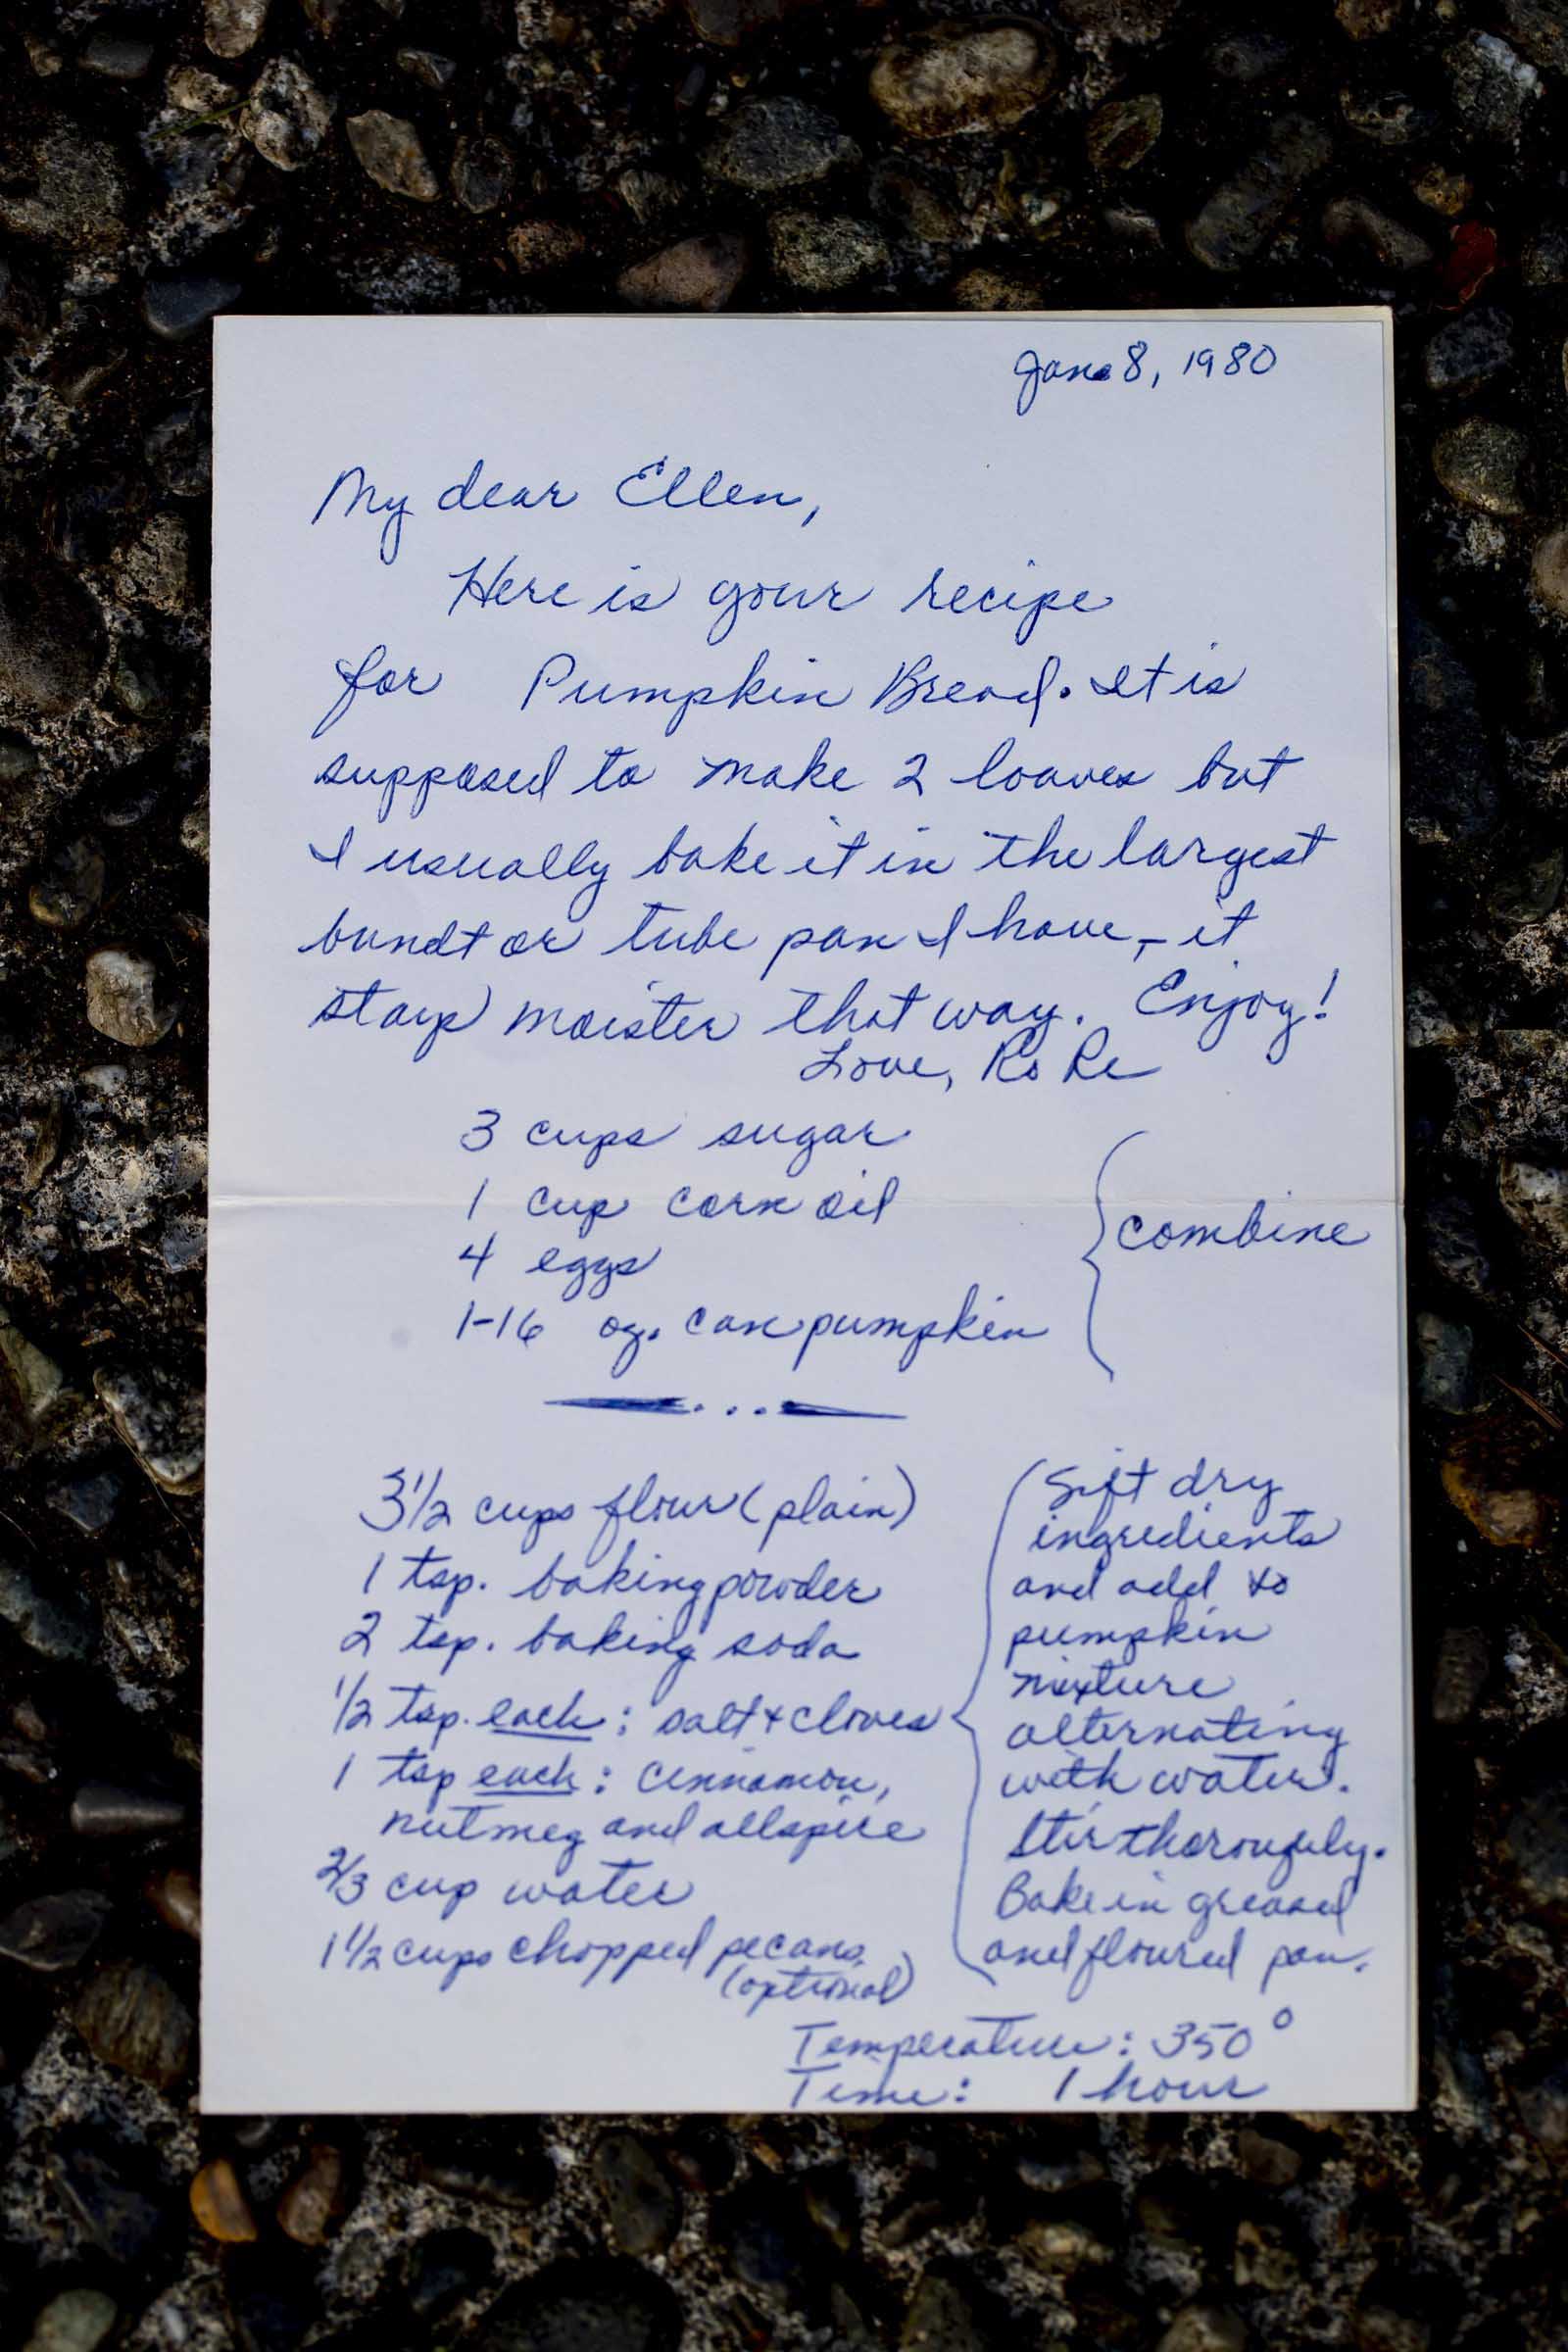 Jan. 8, 1980
My dear Ellen,
Here is your recipe
for Pumpkin Bread. It is
supposed to make 2 loaves but
I usually bake it in the largest
bundt or tube pan I have, - it
stays moister that way. Enjoy!
Love, Ro Re
3 cups sugar
1 cup corn oil
4 eggs
1-16 oz. can pumpkin
combine
3 1/2 cups flour (plain)
1 tsp. baking powder
2 tsp. baking soda
1/2 tsp. each: salt + cloves
1 tsp each: cinnamon,
nutmeg and allspice
2/3 cup water
1 1/2 cups chopped pecans
(optional)
Sift dry
ingredients
and add to
pumpkin
mixture
alternating
with water.
Stir thoroughly.
Bake in greased
and floured pan.
Temperature: 350°
Time: 1 hour